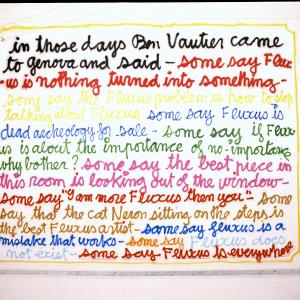 in those days Ben Vautier came
to genova and said - some say Flux
us is nothing turned into something -
some say the Fluxus problem is how to stop
talking about Fluxus some say Fluxus is
dead archeology for sale - some say if Fluxus
is about the importance of no-importance
why bother? some say the best piece in
this room is looking out of the window -
some say "I am more Fluxus then you" - some
say that the cat Neron sitting on the steps is
the best Fluxus artist - some say fluxus is a
mistake that works - some say Fluxus does
not exist - some say Fluxus is everywhere